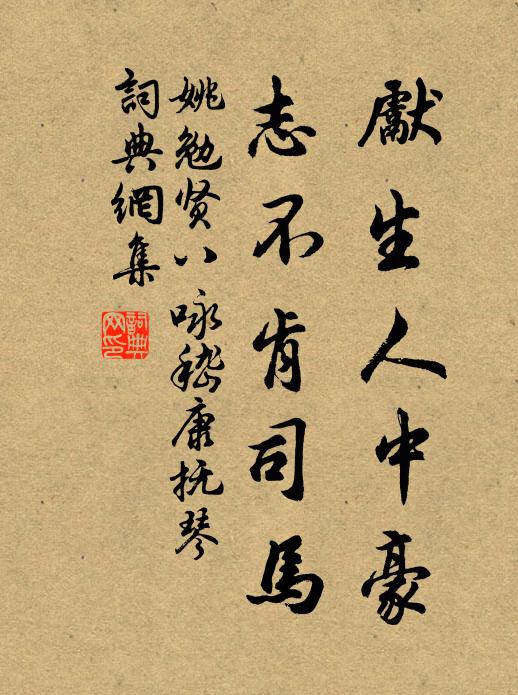 獻生人中豪
志不肯司馬
姚勉贤八咏嵇康抚琴
詞典網集
詞典
网印